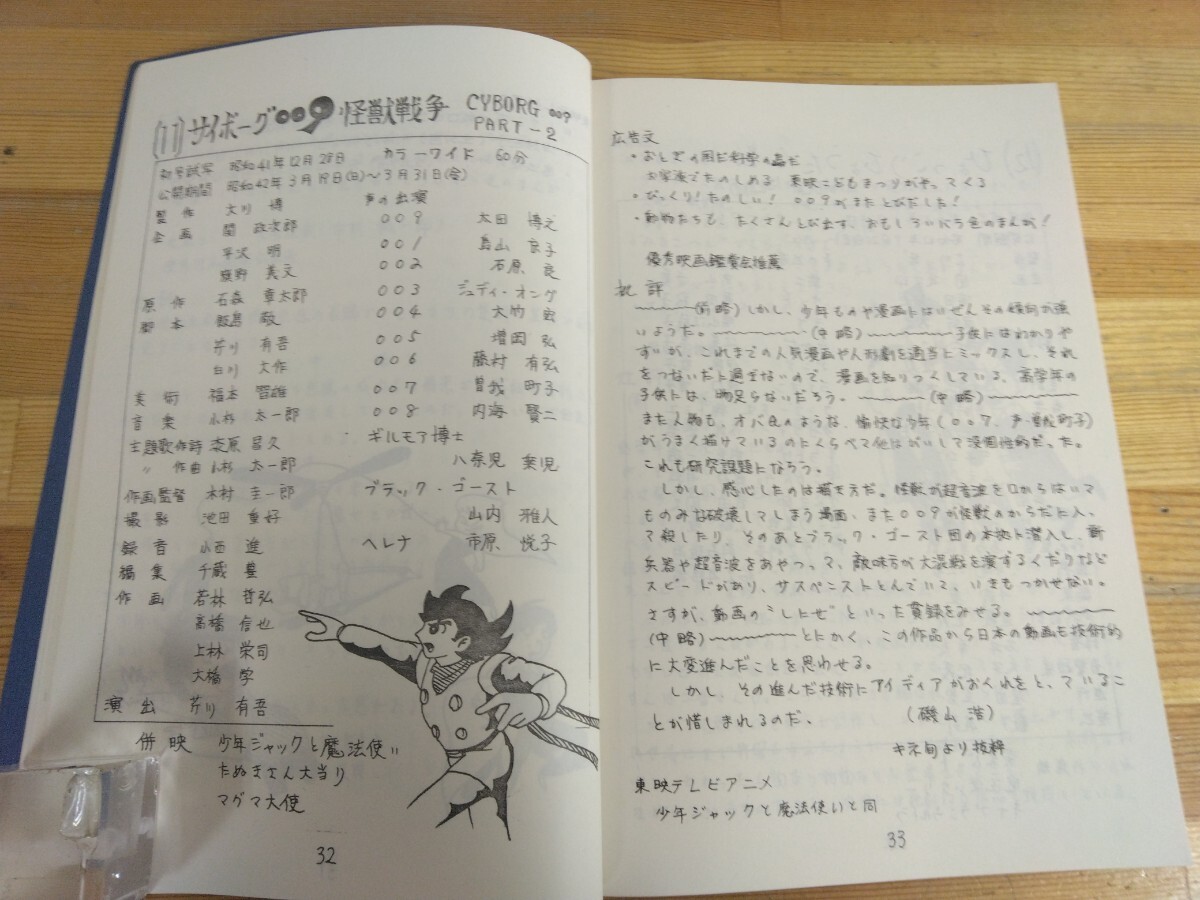 (11) サイボーグ009 怪獣戦争 CYBORG 009 PART-2
初号試写 昭和41年12月28日 カラーワイド 60分
公開期間 昭和42年3月19日(日)～3月31日(金)
製作 大川 博 声の出演
企画 関 政次郎 009 太田 博之
平沢 明 001 島山 京子
籏野 義文 002 石原 良
原作 石森 章太郎 003 ジュディ・オング
脚本 飯島 敬 004 大竹 宏
芹川 有吾 005 増岡 弘
白川 大作 006 藤村 有弘
美術 福本 智雄 007 曽我 町子
音楽 小杉 太一郎 008 内海 賢二
主題歌作詩 漆原 昌久 ギルモア博士
〃 作曲 小杉 太一郎 八奈児 乗児
作画監督 木村 圭一郎 ブラック・ゴースト
撮影 池田 重好 山内 雅人
録音 小西 進 ヘレナ 市原 悦子
編集 千蔵 豊
作画 若林 哲弘
高橋 信也
上林 栄司
大橋 学
演出 芹川 有吾
併映 少年ジャックと魔法使い
たぬきさん大当り
マグマ大使
32
広告文
・おとぎの国だ科学の森だ
大家族でたのしめる 東映こどもまつりがやってくる
・びっくり!たのしい! 009がまたとびだした!
・動物たちも、たくさんとび出す、おもしろいバラ色のまんが!
優秀映画鑑賞会推薦
批評
～～～(前略)しかし、少年ものや漫画にはいぜんその傾向が強
いようだ。～～～(中略)～～～子供にはわかりや
すいが、これまでの人気漫画や人形劇を適当にミックスし、それ
をつないだに過ぎないので、漫画を知りつくしている、高学年の
子供には、物足らないだろう。～～～(中略)～～～
また人物も、オバQのような、愉快な少年(007、声・曽我町子)
がうまく描けているのにくらべて他はがいして没個性的だった。
これも研究課題になろう。
しかし、感心したのは描き方だ。怪獣が超音波を口からはいて
ものみな破壊してしまう場面、また009が怪獣のからだに入
って殺したり、そのあとブラック・ゴースト団の本拠に潜入し、新
兵器や超音波をあやつって、敵味方が大混戦を演ずるくだりなど
スピードがあり、サスペンストとんでいて、いきもつかせない。
さすが、動画の“しにせ”といった貫録をみせる。～～～
(中略)～～～とにかく、この作品から日本の動画も技術的
に大変進んだことを思わせる。
しかし、その進んだ技術にアイディアがおくれをとっているこ
とが惜しまれるのだ。 (磯山 浩)
キネ旬より抜粋
東映テレビアニメ
少年ジャックと魔法使いと同
33